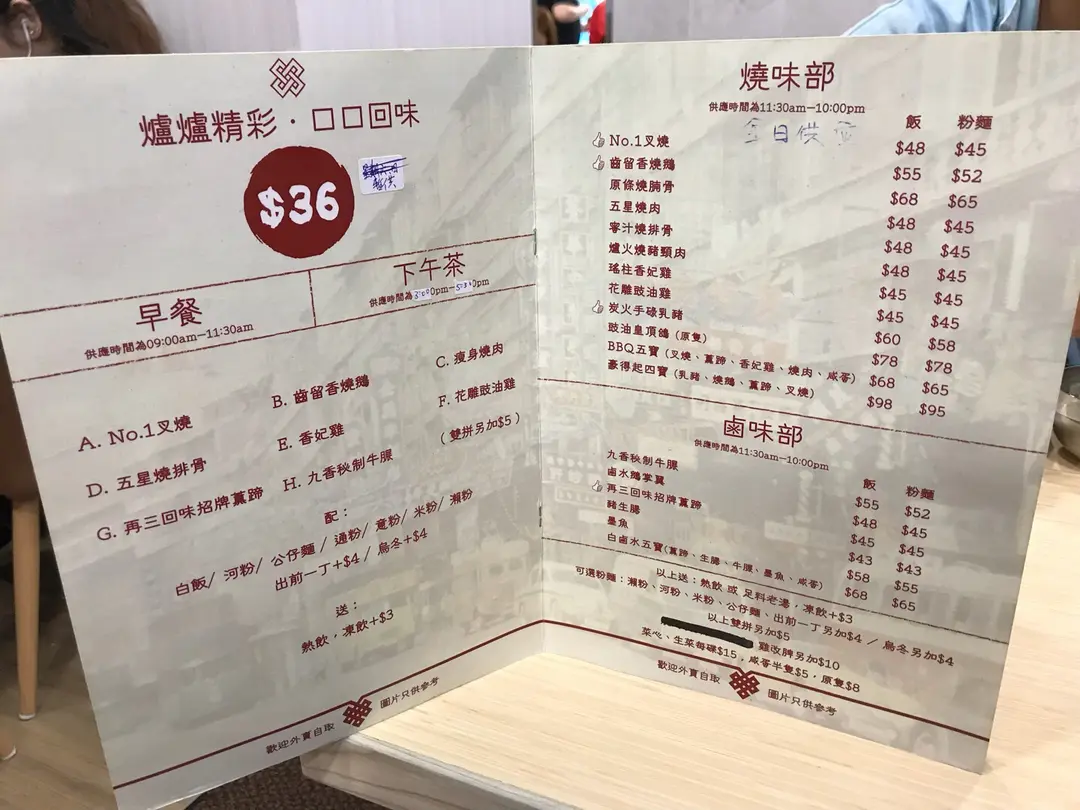 爐爐精彩．口口回味
$36
暫供
早餐
供應時間為09:00am—11:30am
下午茶
供應時間為3:00pm—5:30pm
A. No.1叉燒
B. 齒留香燒鵝
C. 瘦身燒肉
D. 五星燒排骨
E. 香妃雞
F. 花雕豉油雞
G. 再三回味招牌薰蹄
H. 九香秘制牛腩
(雙拼另加$5)
配：
白飯/ 河粉/ 公仔麵/ 通粉/ 意粉/ 米粉/ 瀨粉
出前一丁+$4/ 烏冬+$4
送：
熱飲，凍飲+$3
歡迎外賣自取
圖片只供參考
燒味部
供應時間為11:30am—10:00pm
全日供應
飯 粉麵
No.1叉燒 $48 $45
齒留香燒鵝 $55 $52
原條燒腩骨 $68 $65
五星燒肉 $48 $45
蜜汁燒排骨 $48 $45
爐火燒豬頸肉 $48 $45
瑤柱香妃雞 $45 $45
花雕豉油雞 $45 $45
炭火手碌乳豬 $60 $58
豉油皇頂鴿 (原隻) $78 $78
BBQ五寶 (叉燒、薰蹄、香妃雞、燒肉、咸蛋) $68 $65
豪得起四寶 (乳豬、燒鵝、薰蹄、叉燒) $98 $95
鹵味部
供應時間為11:30am—10:00pm
飯 粉麵
九香秘制牛腩 $55 $52
鹵水鵝掌翼 $48 $45
再三回味招牌薰蹄 $45 $45
豬生腸 $43 $43
墨魚 $58 $55
白鹵水五寶(薰蹄、生腸、牛腩、墨魚、咸蛋) $68 $65
以上送：熱飲 或 足料老湯，凍飲+$3
可選粉麵：瀨粉、河粉、米粉、公仔麵、出前一丁另加$4 / 烏冬另加$4
以上雙拼另加$5
雞改脾另加$10
菜心、生菜每碟$15，咸蛋半隻$5，原隻$8
歡迎外賣自取
圖片只供參考